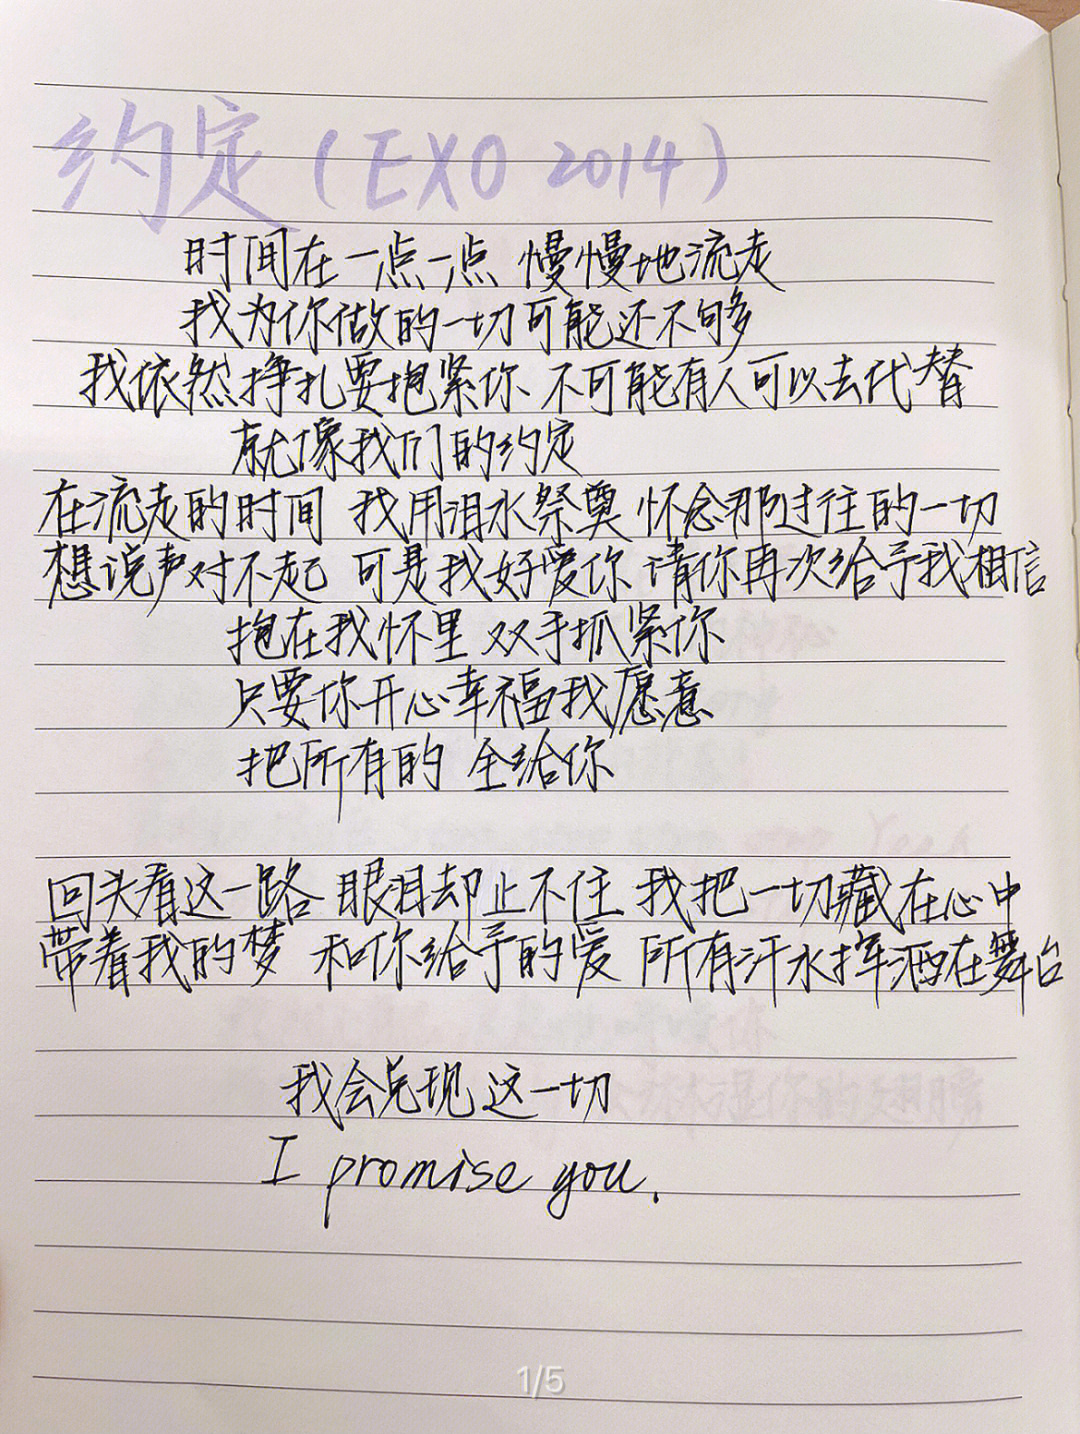 约定（EXO 2014）
时间在一点一点 慢慢地流走
我为你做的一切可能还不够
我依然挣扎要抱紧你 不可能有人可以去代替
就像我们的约定
在流走的时间 我用泪水祭奠 怀念那过往的一切
想说声对不起 可是我好爱你 请你再次给予我相信
抱在我怀里 双手抓紧你
只要你开心幸福我愿意
把所有的 全给你
回头看这一路 眼泪却止不住 我把一切藏在心中
带着我的梦 和你给予的爱 所有汗水挥洒在舞台
我会兑现这一切
I promise you.
1/5